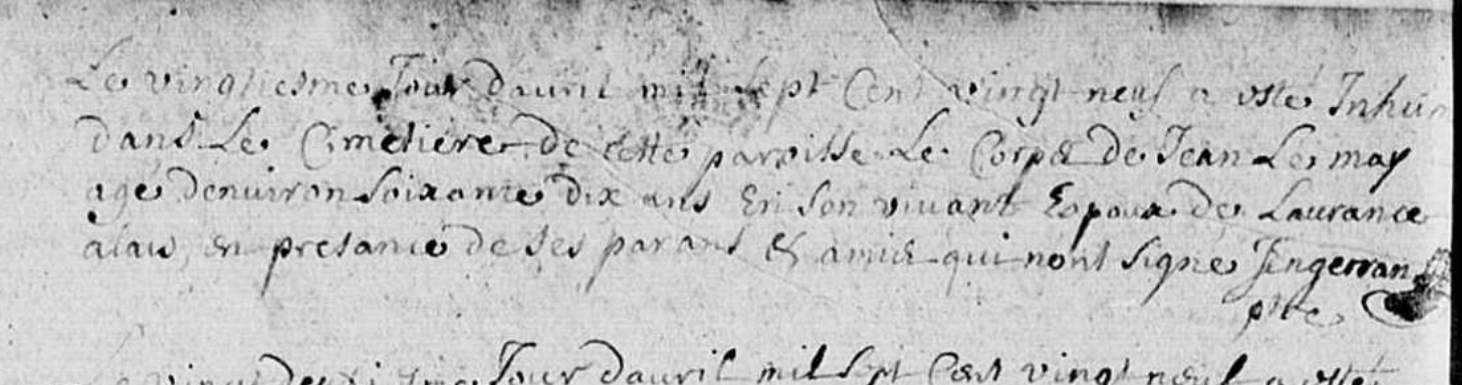 Le vingtiesme Jour dauril mil sept Cent vingt neuf a esté Inhum
dans Le Cimetiere de cette paroisse Le Corps de Jean Le may
agé denuiron soixante dix ans En son viuant Espoux de Laurance
alais, en presance de ses parans & amis qui nont signe Jengerran
ptre
Le vingt deuxiesme Jour dauril mil sept Cent vingt neuf a esté